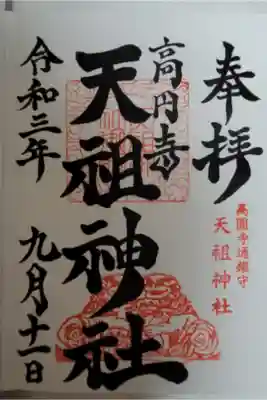 奉拝
高円寺通鎮守
天祖神社
高円寺
天祖神社
令和三年
九月十一日